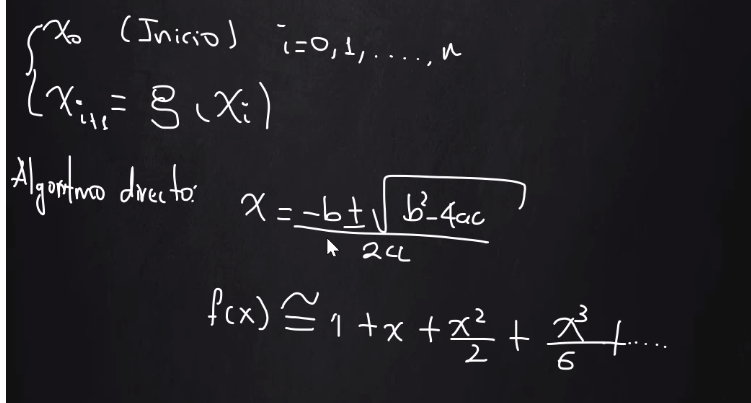 x₀ (Inicio) i=0,1,.....,n
xᵢ₊₁ = g(xᵢ)
Algoritmo directo:
x = (-b ± √(b²-4ac)) / 2a
f(x) ≅ 1 + x + x²/2 + x³/6 + .....